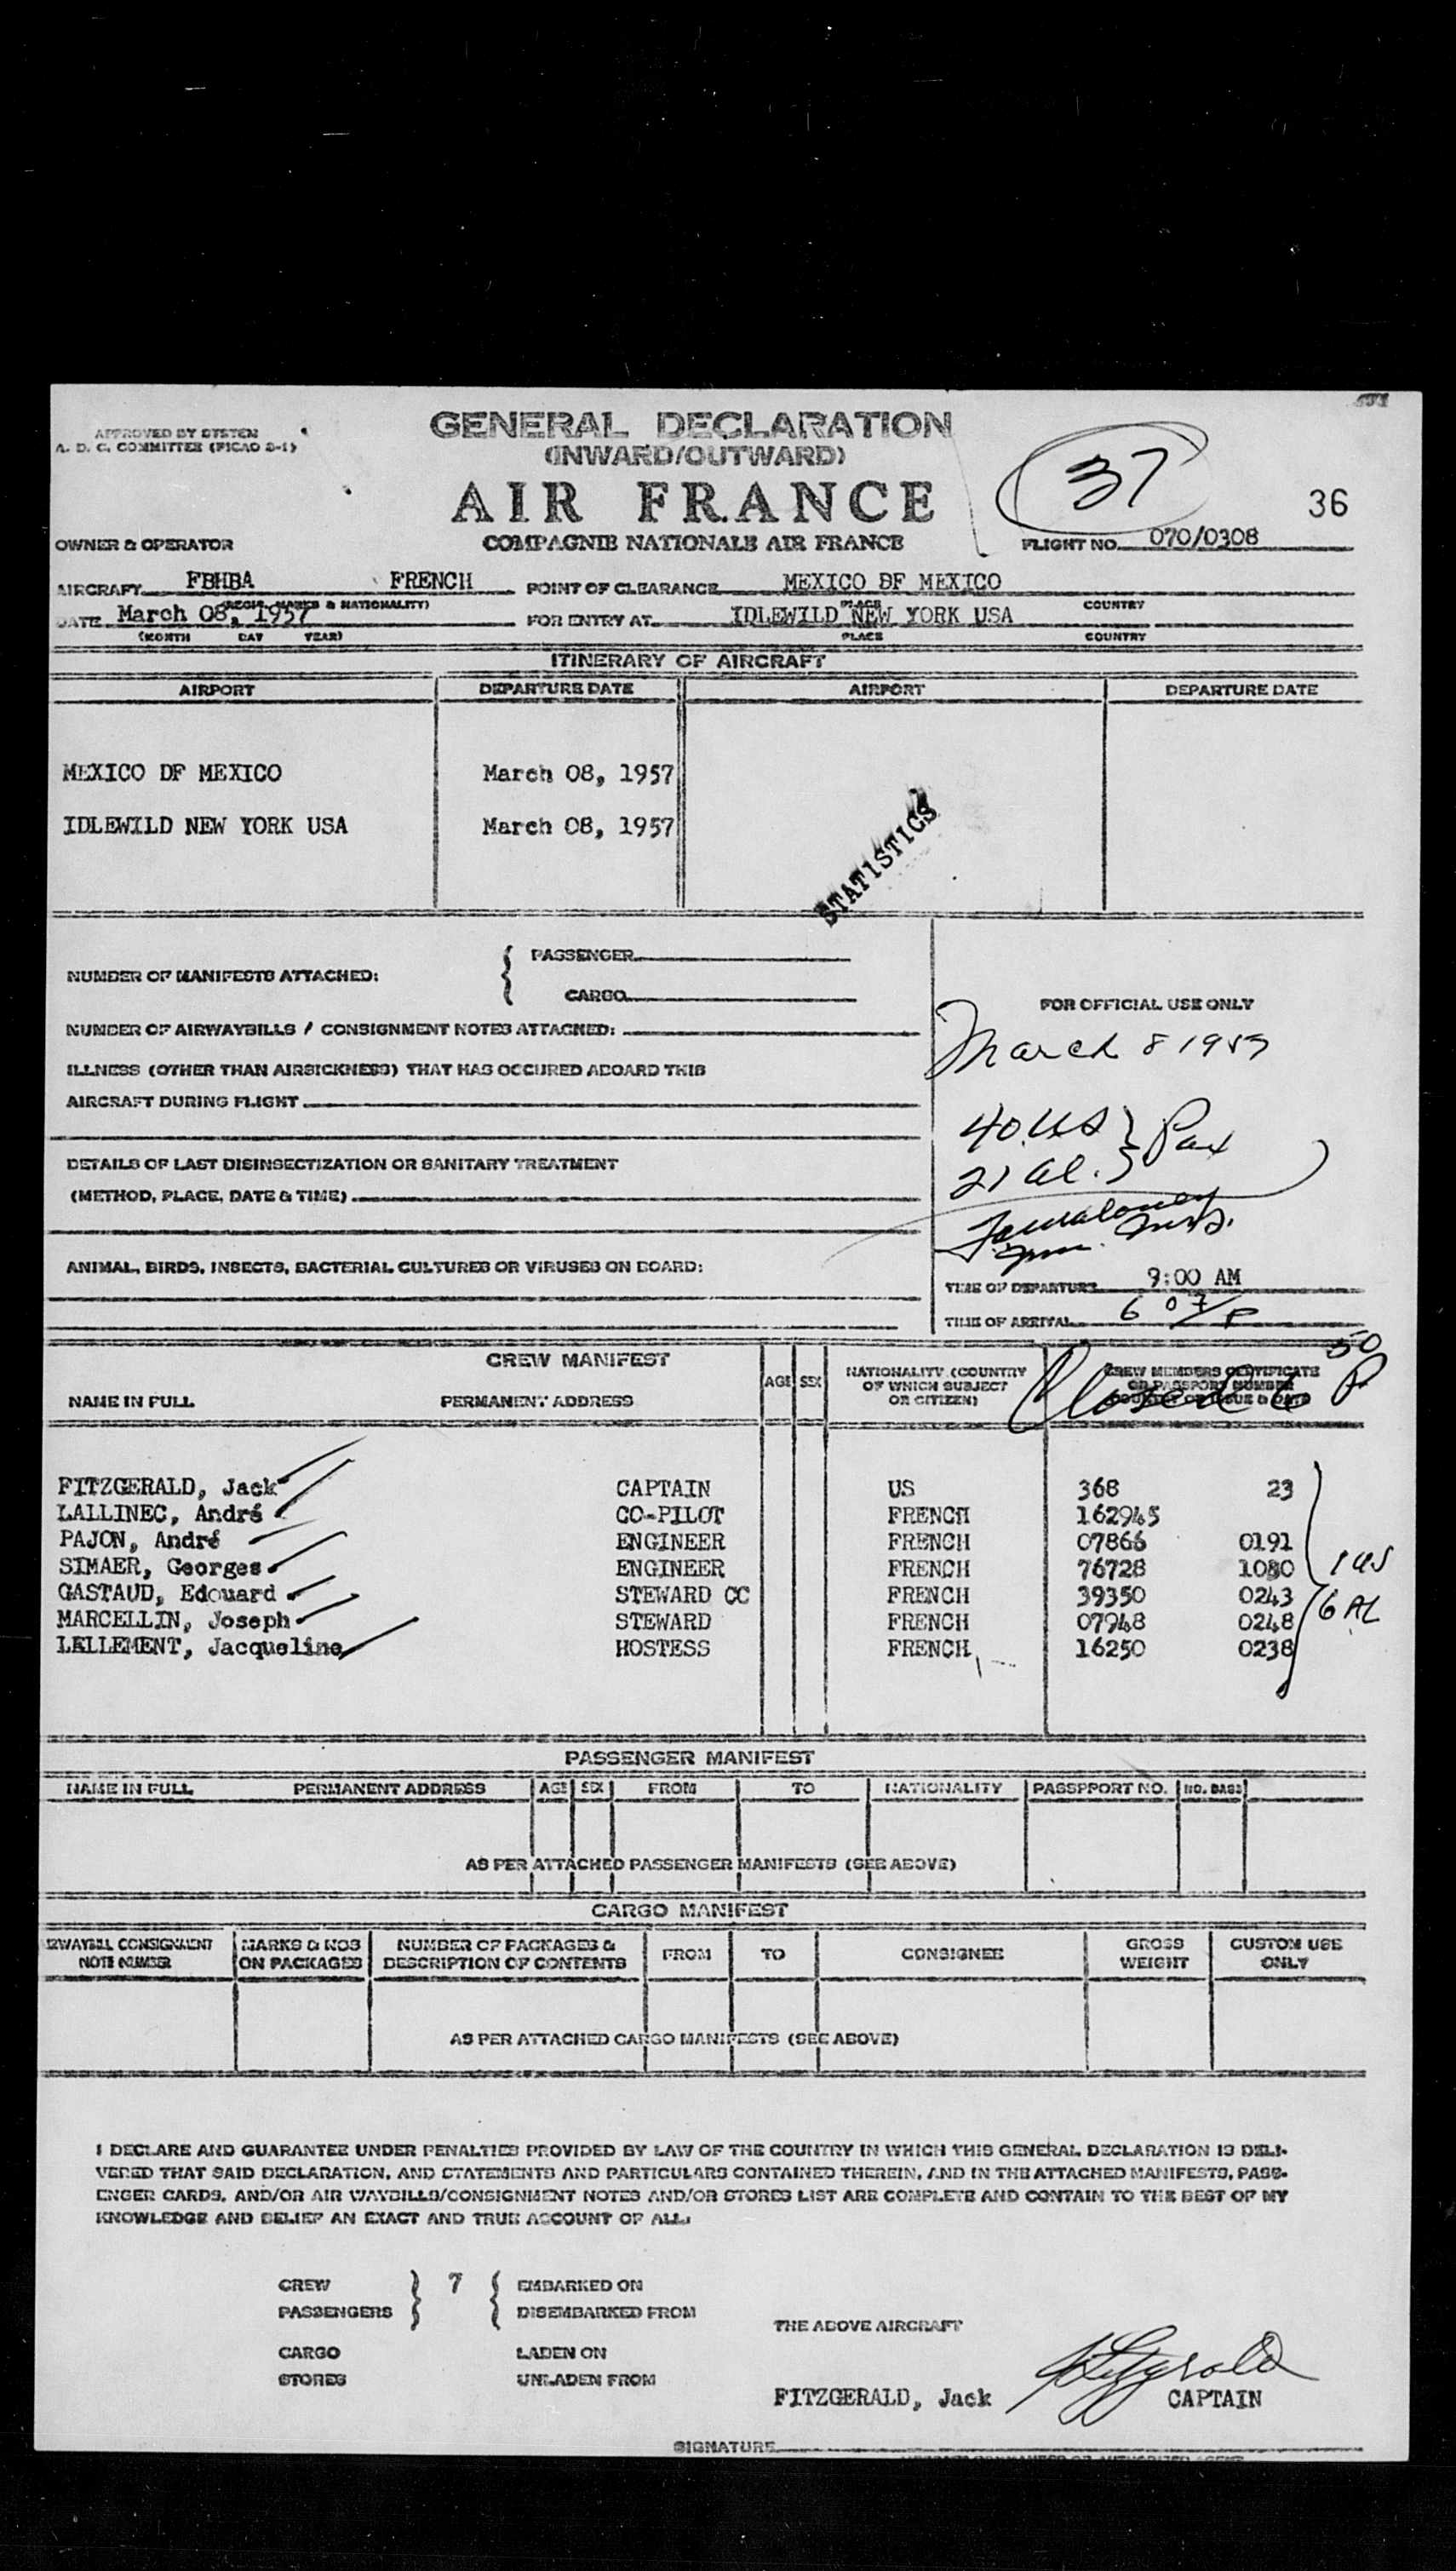 APPROVED BY SYSTEM
A. D. C. COMMITTEE (FICAO 2-1)
GENERAL DECLARATION
(INWARD/OUTWARD)
AIR FRANCE
COMPAGNIE NATIONALE AIR FRANCE
37
36
OWNER & OPERATOR
FLIGHT NO. 070/0308
AIRCRAFT FBHBA FRENCH POINT OF CLEARANCE MEXICO DF MEXICO
(REGIS. MARKS & NATIONALITY) PLACE COUNTRY
DATE March 08, 1957 FOR ENTRY AT IDLEWILD NEW YORK USA
(MONTH DAY YEAR) PLACE COUNTRY
ITINERARY OF AIRCRAFT
AIRPORT DEPARTURE DATE AIRPORT DEPARTURE DATE
MEXICO DF MEXICO March 08, 1957
IDLEWILD NEW YORK USA March 08, 1957
STATISTICS
NUMBER OF MANIFESTS ATTACHED: { PASSENGER
CARGO
NUMBER OF AIRWAYBILLS / CONSIGNMENT NOTES ATTACHED:
ILLNESS (OTHER THAN AIRSICKNESS) THAT HAS OCCURED ABOARD THIS
AIRCRAFT DURING FLIGHT
DETAILS OF LAST DISINSECTIZATION OR SANITARY TREATMENT
(METHOD, PLACE, DATE & TIME)
ANIMAL, BIRDS, INSECTS, BACTERIAL CULTURES OR VIRUSES ON BOARD:
FOR OFFICIAL USE ONLY
March 8 1957
40 US } Pax
21 Al. }
TIME OF DEPARTURE 9:00 AM
TIME OF ARRIVAL 6 07/P
CREW MANIFEST
NAME IN FULL PERMANENT ADDRESS AGE SEX NATIONALITY (COUNTRY OF WHICH SUBJECT OR CITIZEN) CREW MEMBERS CERTIFICATE OR PASSPORT NUMBER COUNTRY OF ISSUE & DATE
Closed 6 50 P
FITZGERALD, Jack CAPTAIN US 368 23
LALLINEC, André CO-PILOT FRENCH 162945
PAJON, André ENGINEER FRENCH 07866 0191
SIMAER, Georges ENGINEER FRENCH 76728 1080
GASTAUD, Edouard STEWARD CC FRENCH 39350 0243
MARCELLIN, Joseph STEWARD FRENCH 07948 0248
LALLEMENT, Jacqueline HOSTESS FRENCH 16250 0238
1 US
6 AL
PASSENGER MANIFEST
NAME IN FULL PERMANENT ADDRESS AGE SEX FROM TO NATIONALITY PASSPPORT NO. NO. BAGS
AS PER ATTACHED PASSENGER MANIFESTS (SEE ABOVE)
CARGO MANIFEST
AIRWAYBILL CONSIGNMENT NOTE NUMBER MARKS & NOS ON PACKAGES NUMBER OF PACKAGES & DESCRIPTION OF CONTENTS FROM TO CONSIGNEE GROSS WEIGHT CUSTOM USE ONLY
AS PER ATTACHED CARGO MANIFESTS (SEE ABOVE)
I DECLARE AND GUARANTEE UNDER PENALTIES PROVIDED BY LAW OF THE COUNTRY IN WHICH THIS GENERAL DECLARATION IS DELI-
VERED THAT SAID DECLARATION, AND STATEMENTS AND PARTICULARS CONTAINED THEREIN, AND IN THE ATTACHED MANIFESTS, PASS-
ENGER CARDS, AND/OR AIR WAYBILLS/CONSIGNMENT NOTES AND/OR STORES LIST ARE COMPLETE AND CONTAIN TO THE BEST OF MY
KNOWLEDGE AND BELIEF AN EXACT AND TRUE ACCOUNT OF ALL:
CREW } 7 { EMBARKED ON
PASSENGERS DISEMBARKED FROM
THE ABOVE AIRCRAFT
CARGO LADEN ON
STORES UNLADEN FROM
Fitzgerald
FITZGERALD, Jack CAPTAIN
SIGNATURE